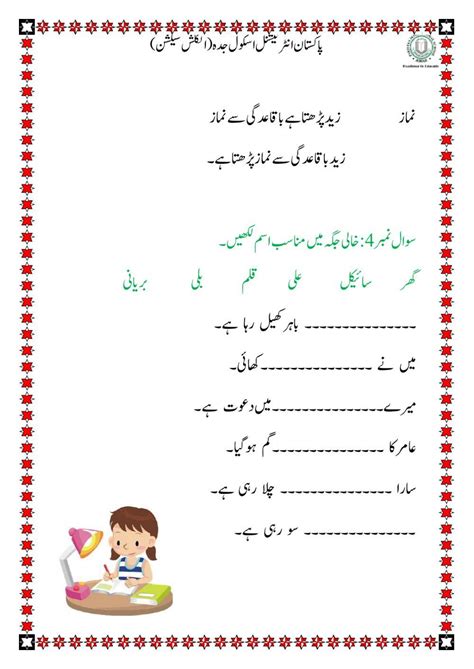 پاکستان انٹرنیشنل اسکول جدہ (انگلش سیکشن)
نماز زید پڑھتا ہے باقاعدگی سے نماز
زید باقاعدگی سے نماز پڑھتا ہے۔
سوال نمبر 4: خالی جگہ میں مناسب اسم لکھیں۔
گھر سائیکل علی قلم بلی بریانی
--------------- باہر کھیل رہا ہے۔
میں نے --------------- کھائی۔
میرے --------------- میں دعوت ہے۔
عامر کا --------------- گم ہو گیا۔
سارا --------------- چلا رہی ہے۔
--------------- سو رہی ہے۔